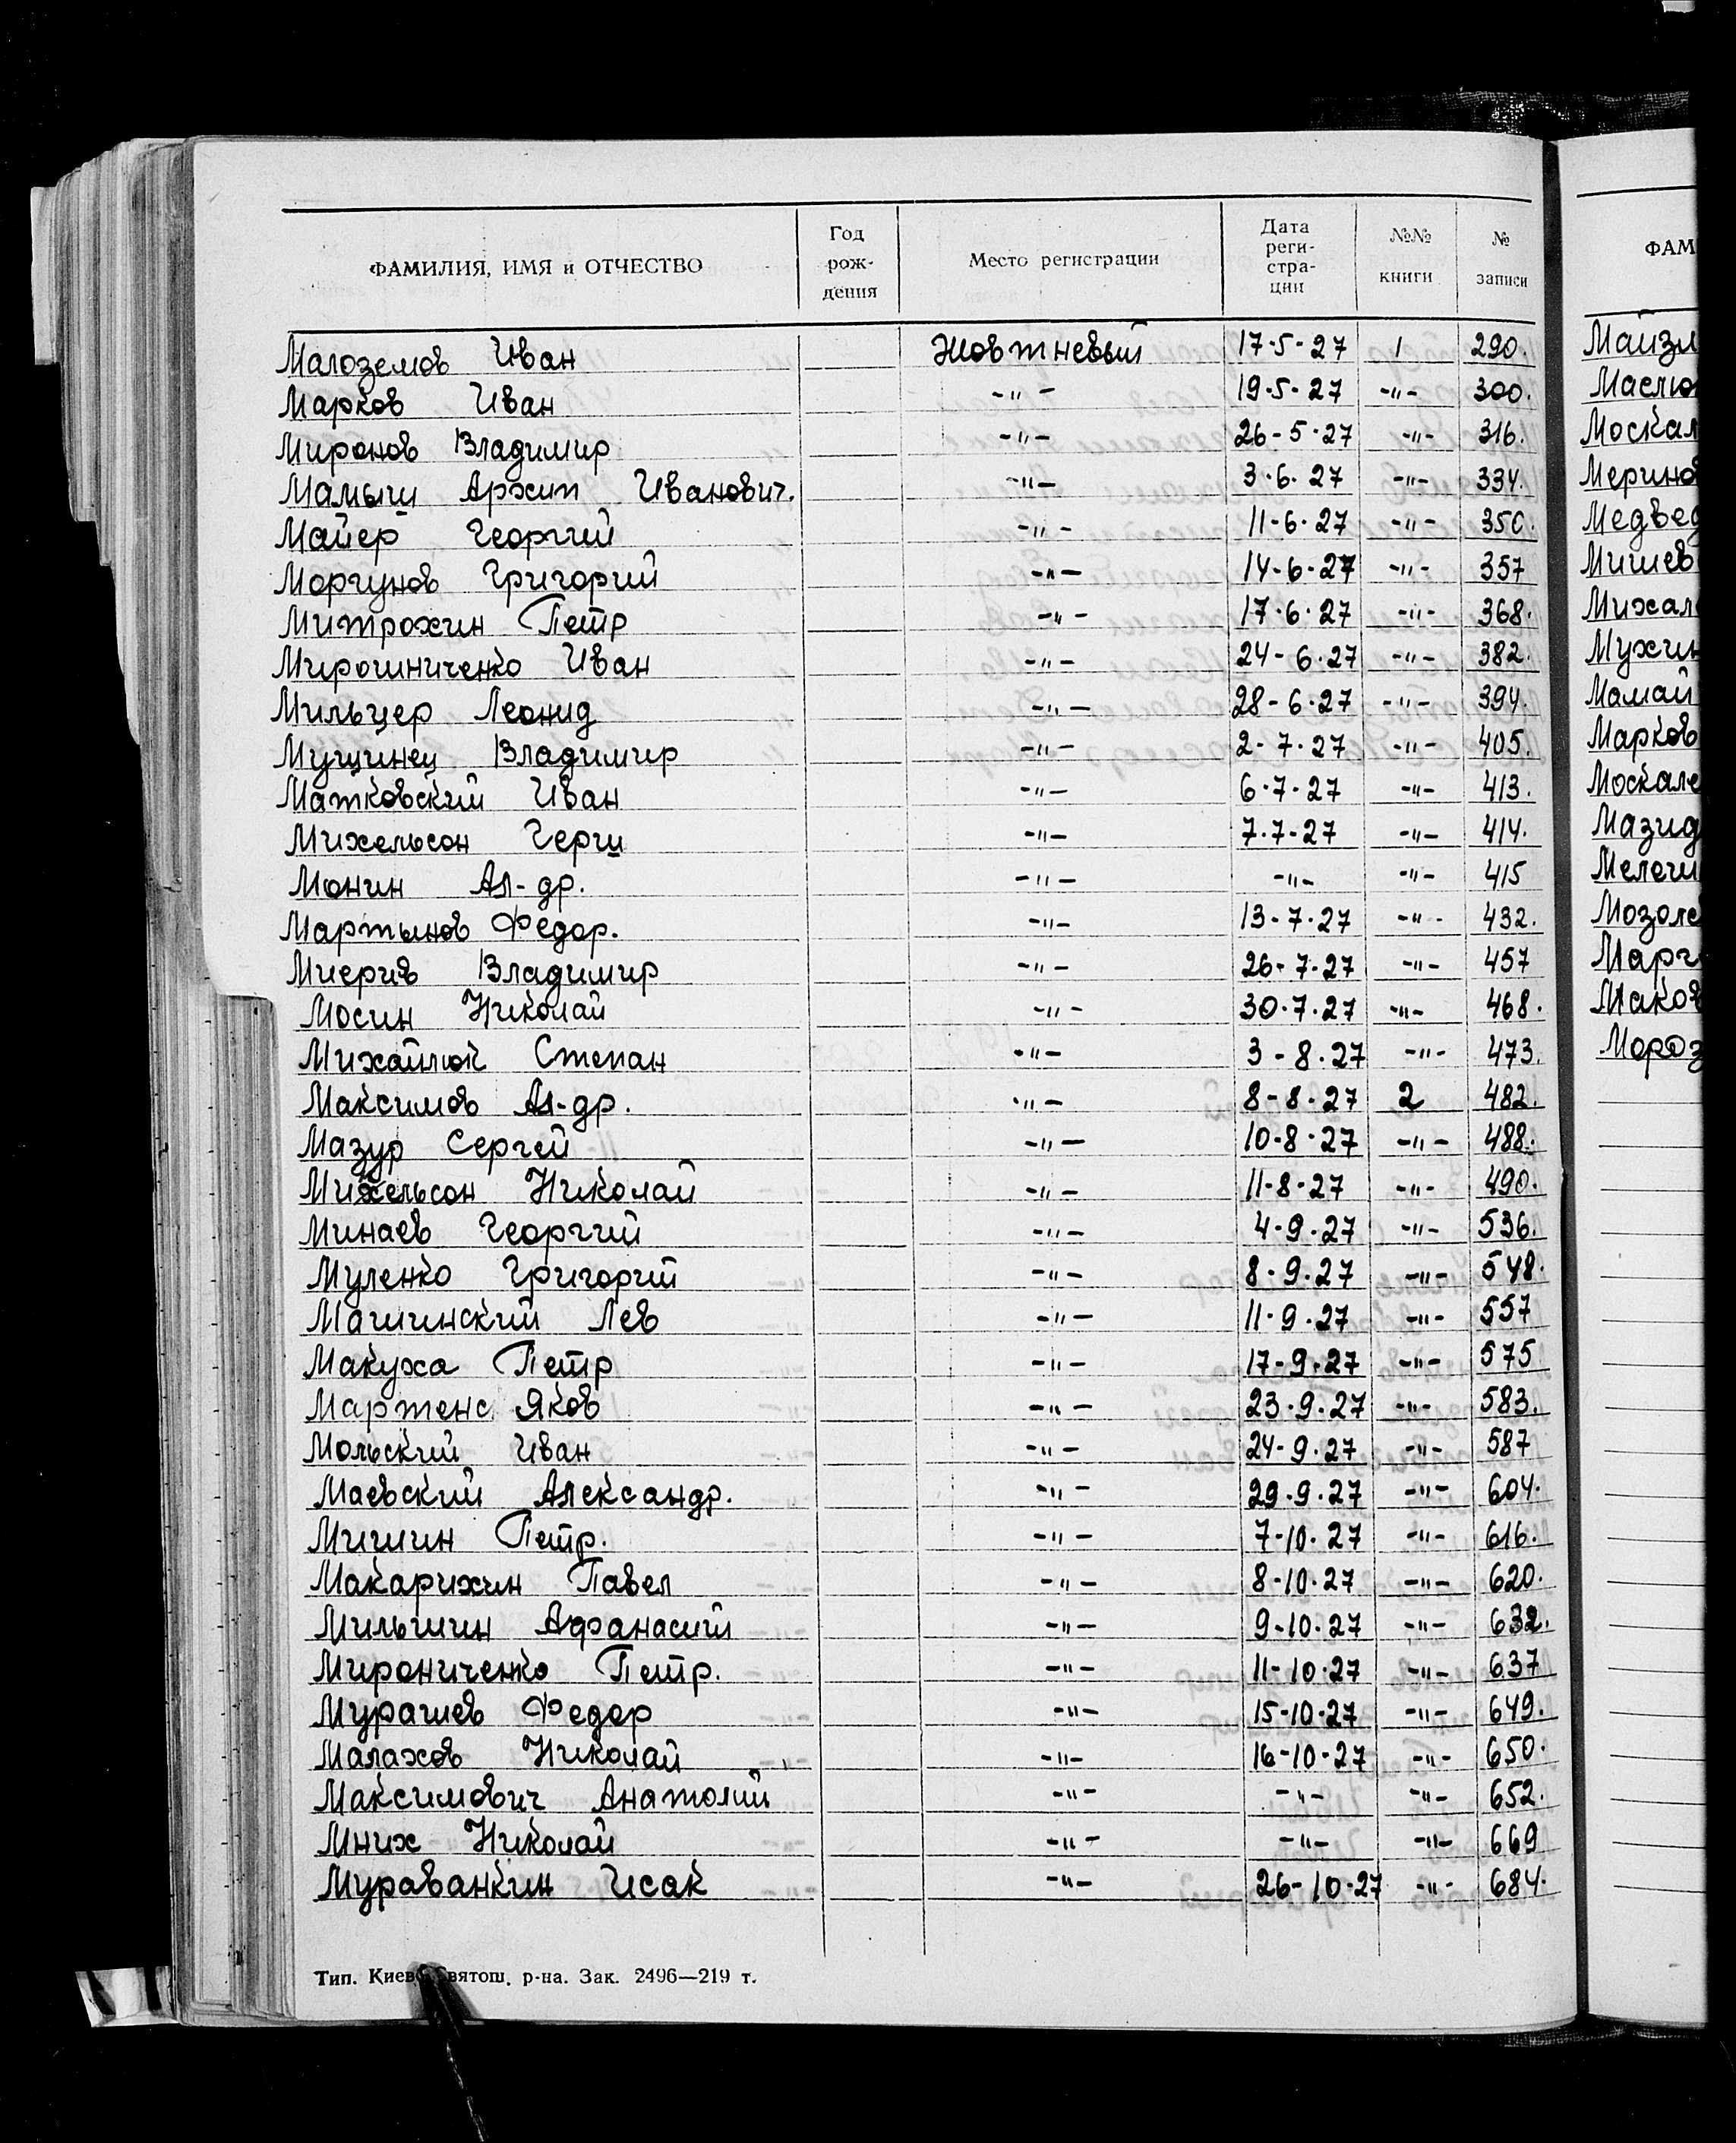 ФАМИЛИЯ, ИМЯ и ОТЧЕСТВО Год рож- дения Место регистрации Дата реги- стра- ции №№ книги № записи
Малоземов Иван Жовтневый 17-5-27 1 290.
Марков Иван -"- 19-5-27 -"- 300.
Миронов Владимир -"- 26-5-27 -"- 316.
Мамыш Архип Иванович. -"- 3-6-27 -"- 334.
Майер Георгий -"- 11-6-27 -"- 350.
Моргунов Григорий -"- 14-6-27 -"- 357
Митрохин Петр -"- 17-6-27 -"- 368.
Мирошниченко Иван -"- 24-6-27 -"- 382.
Мильцер Леонид -"- 28-6-27 -"- 394.
Мущинец Владимир -"- 2-7-27 -"- 405.
Матковский Иван -"- 6-7-27 -"- 413.
Михельсон Герш -"- 7-7-27 -"- 414.
Монин Ал-др. -"- -"- -"- 415
Мартынов Федор. -"- 13-7-27 -"- 432.
Владимир -"- 26-7-27 -"- 457
Мосин Николай -"- 30-7-27 -"- 468.
Степан -"- 3-8-27 -"- 473.
Максимов Ал-др. -"- 8-8-27 2 482.
Мазур Сергей -"- 10-8-27 -"- 488.
Михельсон Николай -"- 11-8-27 -"- 490.
Минаев Георгий -"- 4-9-27 -"- 536.
Муленко Григорий -"- 8-9-27 -"- 548.
Машинский Лев -"- 11-9-27 -"- 557
Макуха Петр -"- 17-9-27 -"- 575
Мартенс Яков -"- 23-9-27 -"- 583.
Мольский Иван -"- 24-9-27 -"- 587
Маевский Александр. -"- 29-9-27 -"- 604.
Мишин Петр. -"- 7-10-27 -"- 616.
Макарихин Павел -"- 8-10-27 -"- 620.
Мильшин Афанасий -"- 9-10-27 -"- 632.
Мирониченко Петр. -"- 11-10-27 -"- 637
Мурашев Федор -"- 15-10-27 -"- 649.
Малахов Николай -"- 16-10-27 -"- 650.
Максимович Анатолий -"- -"- -"- 652.
Мних Николай -"- -"- -"- 669
Мураванкин Исак -"- 26-10-27 -"- 684.
Тип. Киев Святош. р-на. Зак. 2496—219 т.
ФАМ
Майзл
Маслю
Москал
Меринов
Медвед
Мишев
Михал
Мухин
Мамай
Марков
Москале
Мазид
Мозоле
Марг
Маков
Мороз